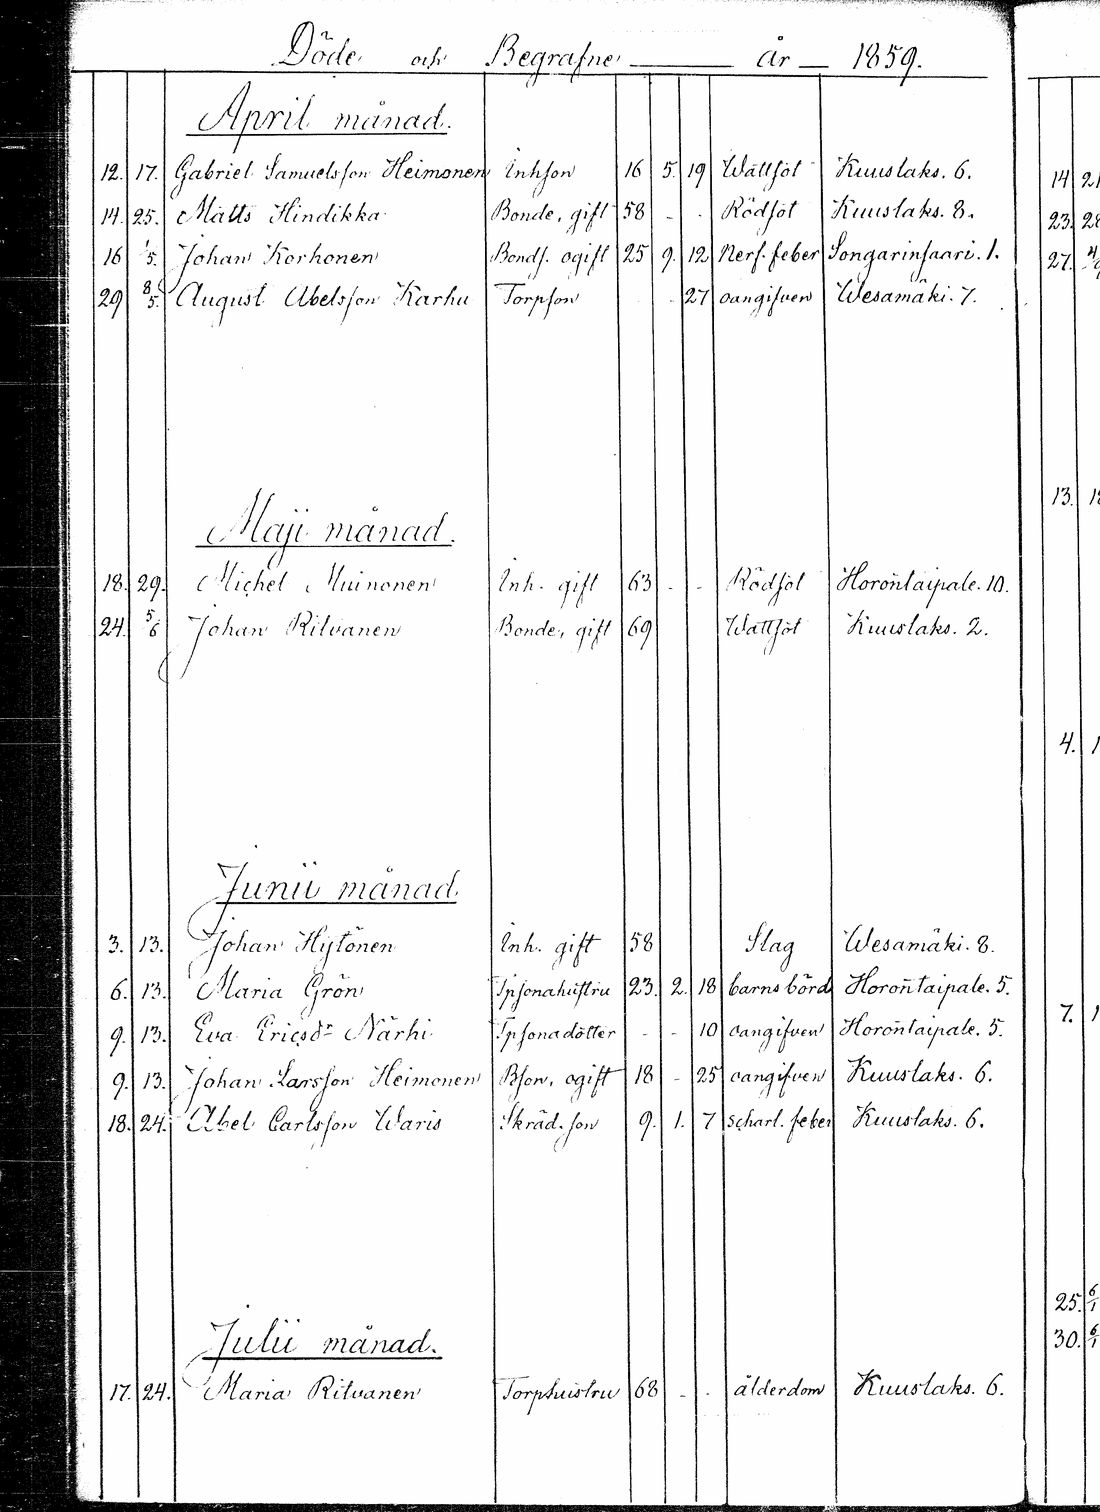 Döde och Begrafne år 1859.
April månad.
12. 17. Gabriel Samuelsson Heimonen Inhson 16 5. 19 Wattsot Kuuslaks. 6.
14. 25. Matts Hindikka Bonde, gift 58 - - Rödsot Kuuslaks. 8.
16 1/5. Johan Korhonen Bonds. ogift 25 9. 12 Nerf. feber Songarinsaari. 1.
29 8/5. August Abelsson Karhu Torpson 27 oangifven Wesamäki. 7.
Maji månad.
18. 29. Michel Muinonen Inh. gift 63 - - Rödsot Horoñtaipale. 10.
24. 5/6 Johan Ritvanen Bonde, gift 69 Wattsot Kuuslaks. 2.
Junii månad
3. 13. Johan Hytönen Inh. gift 58 Slag Wesamäki. 8.
6. 13. Maria Grön Tpsonahustru 23. 2. 18 barnsbörd Horoñtaipale. 5.
9. 13. Eva Ericsdr Närhi Tpsonadotter - - 10 oangifven Horoñtaipale. 5.
9. 13. Johan Larsson Heimonen Bson, ogift 18 - 25 oangifven Kuuslaks. 6.
18. 24. Abel Carlsson Waris Skräd. son 9. 1. 7 Scharl. feber Kuuslaks. 6.
Julii månad.
17. 24. Maria Ritvanen Torphustru 68 - - ålderdom Kuuslaks. 6.
14 21
23. 28
27.
13. 18
4. 1
7. 1
25. 6/1
30. 6/1